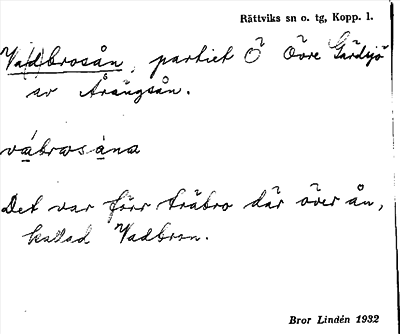 Rättviks sn o. tg, Kopp. l.
Va(d)brosån, partiet Ö Övre Gärdsjö
av Årängsån.
vábrosåna
Det var förr träbro där över ån,
kallad Vadbron.
Bror Lindén 1932